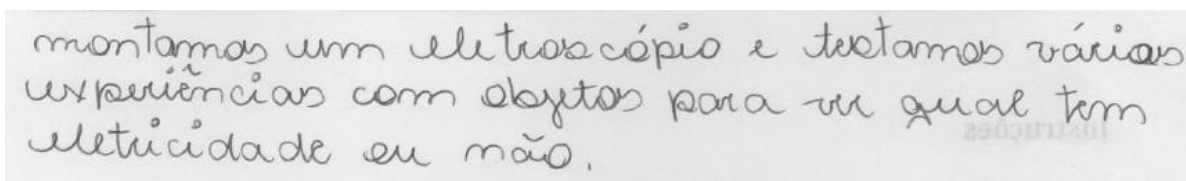 montamos um eletroscópio e testamos várias
experiências com objetos para ver qual tem
eletricidade ou não.
Instruções